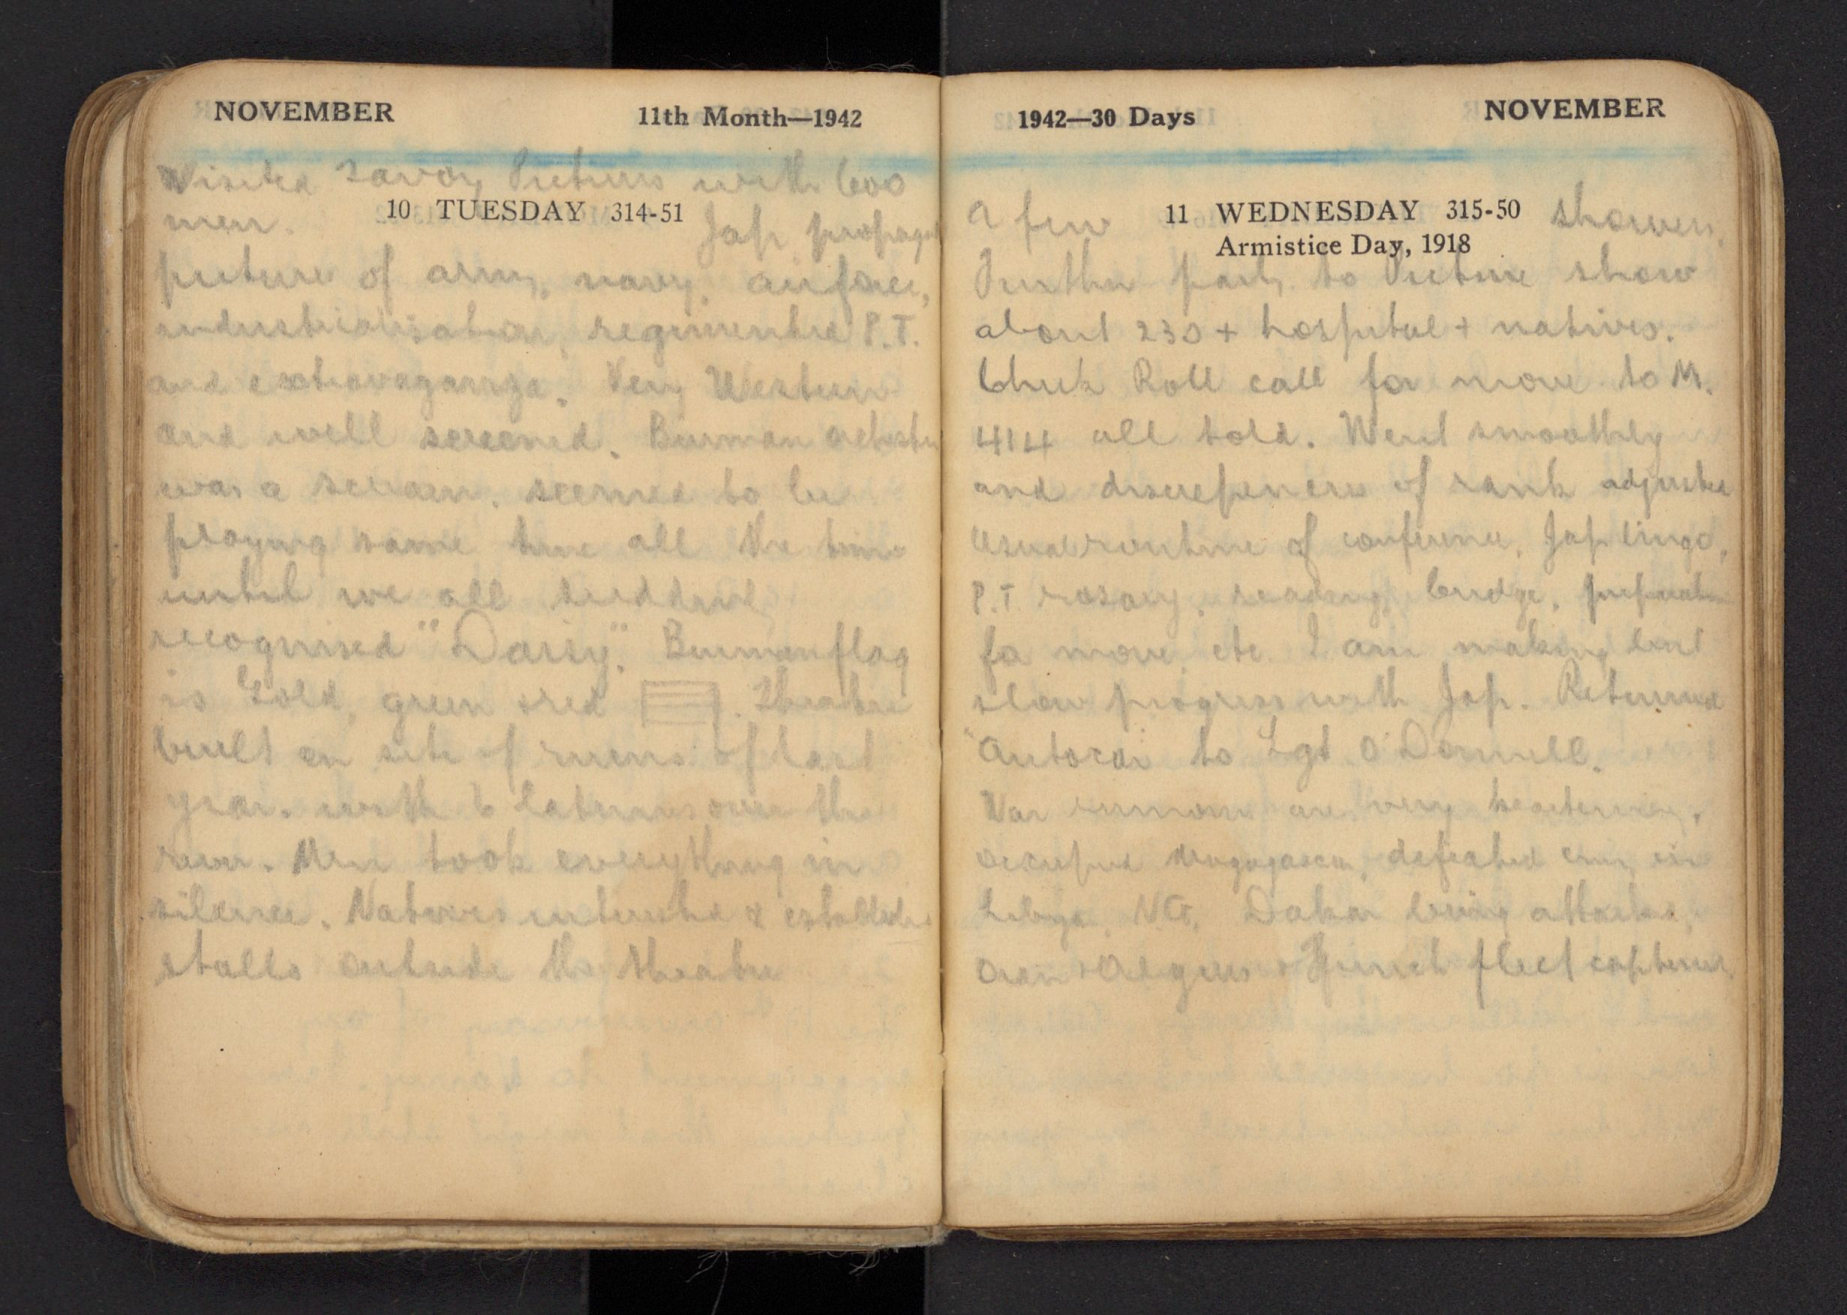 NOVEMBER 11th Month—1942
Visited Savoy Pictures with 600
10 TUESDAY 314-51
men. Jap propagand
picture of army, navy, airforce,
industrialisation, regimented P.T.
and extravaganza. Very Western
and well screened. Burman orchestra
was a scream, seemed to be
playing same tune all the time
until we all suddenly
recognised "Daisy". Burman flag
is Gold, green & red. Theatre
built on site of ruins of last
year. with 6 latrines over the
river. Men took everything in
silence. Natives interested & established
stalls outside the theatre
1942—30 Days NOVEMBER
11 WEDNESDAY 315-50
A few showers.
Armistice Day, 1918
Further party to Picture show
about 230 + hospital + natives.
Check Roll call for move to M.
414 all told. Went smoothly
and discrepencies of rank adjusted
Usual routine of conference, Jap lingo,
P.T. rosary, reading, bridge, preparation
for move, etc I am making but
slow progress with Jap. Returned
"Autocar to Sgt O'Donnell.
War rumours are very heartening,
occupied Madagascar, defeated enemy in
Libya, N.G, Dakar being attacked,
Oran + Algiers + French fleet captured.